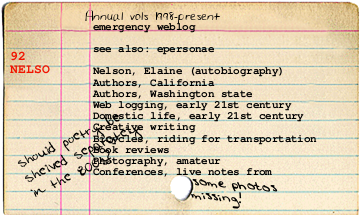 Annual vols 1998-present
emergency weblog
see also: epersonae
92
NELSO
Nelson, Elaine (autobiography)
Authors, California
Authors, Washington state
Web logging, early 21st century
Domestic life, early 21st century
Creative writing
Bicycles, riding for transportation
Book reviews
Photography, amateur
Conferences, live notes from
should poetry be
shelved separately
in the 800s?
some photos
missing!